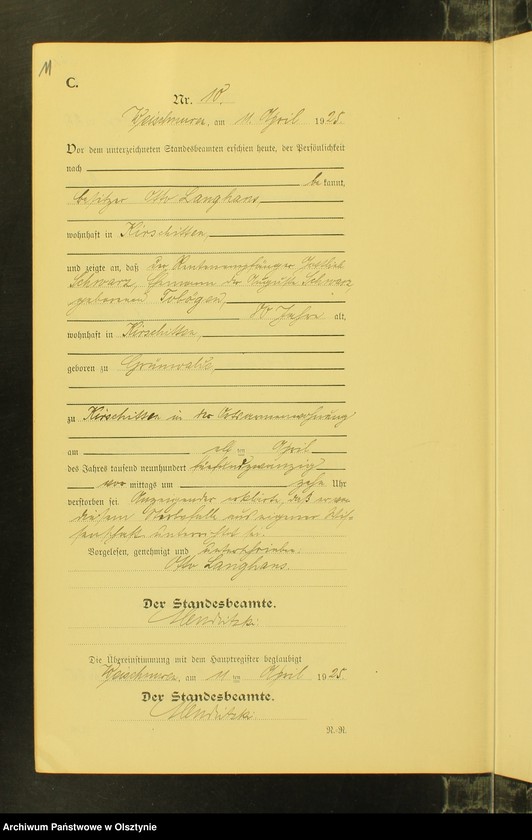 11
C.
Nr. 10.
am 11. April 1925.
Vor dem unterzeichneten Standesbeamten erschien heute, der Persönlichkeit
nach
bekannt,
besitzer Otto Langhans,
wohnhaft in Kirschitten,
und zeigte an, daß der Rentenempfänger Gottlieb
Schwarz, Ehemann der Auguste Schwarz
geborenen
Jahre alt,
wohnhaft in Kirschitten,
geboren zu Grünwalde,
zu Kirschitten in der Ortsarmenwohnung
am elften April
des Jahres tausend neunhundert fünfundzwanzig
vor mittags um zehn Uhr
verstorben sei. Anzeigender erklärte, daß er von
diesem Sterbefalle aus eigener Wis-
senschaft unterrichtet sei.
Vorgelesen, genehmigt und unterschrieben.
Otto Langhans.
Der Standesbeamte.
Die Übereinstimmung mit dem Hauptregister beglaubigt
am 11 ten April 1925.
Der Standesbeamte.
N.-R.
Archiwum Państwowe w Olsztynie